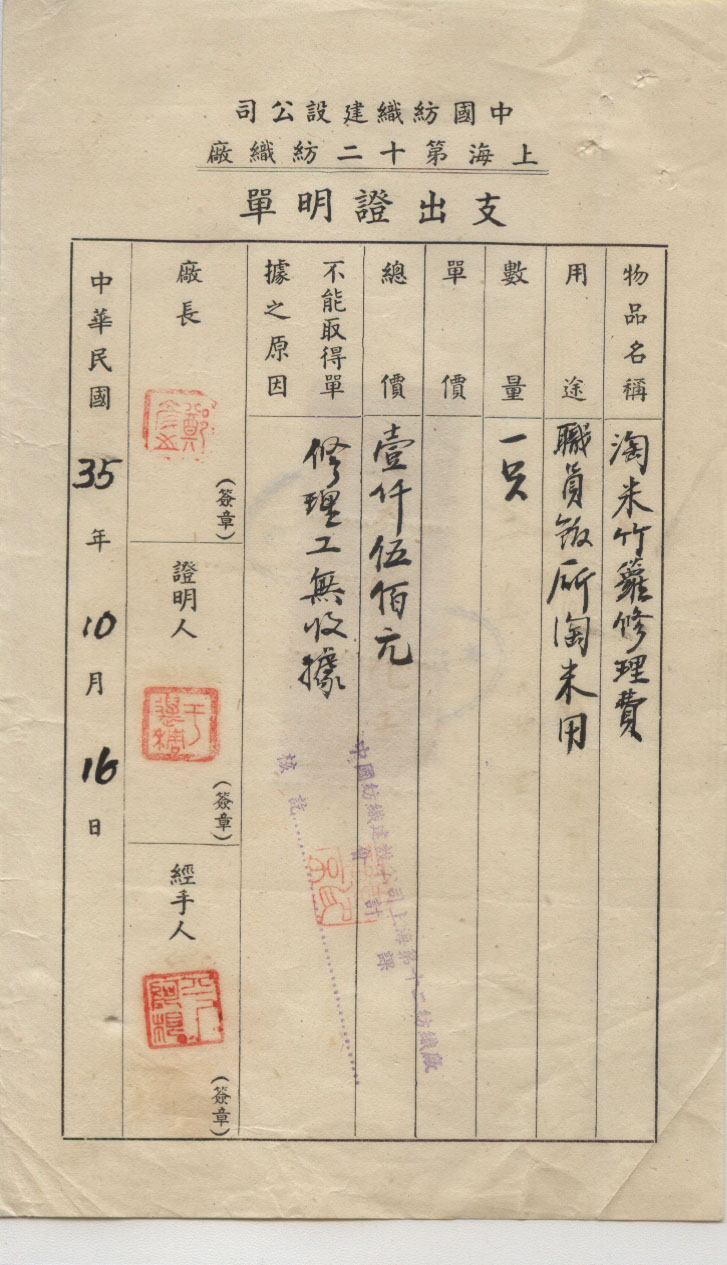 中國紡織建設公司
上海第十二紡織廠
支出證明單
物品名稱
淘米竹籮修理費
用途
職員飯所淘米用
數量
一只
單價
總價
壹仟伍佰元
不能取得單
據之原因
修理工無收據
廠長
(簽章)
證明人
(簽章)
經手人
(簽章)
中華民國35年10月16日
中國紡織建設公司上海第十二紡織廠
會計課
核訖